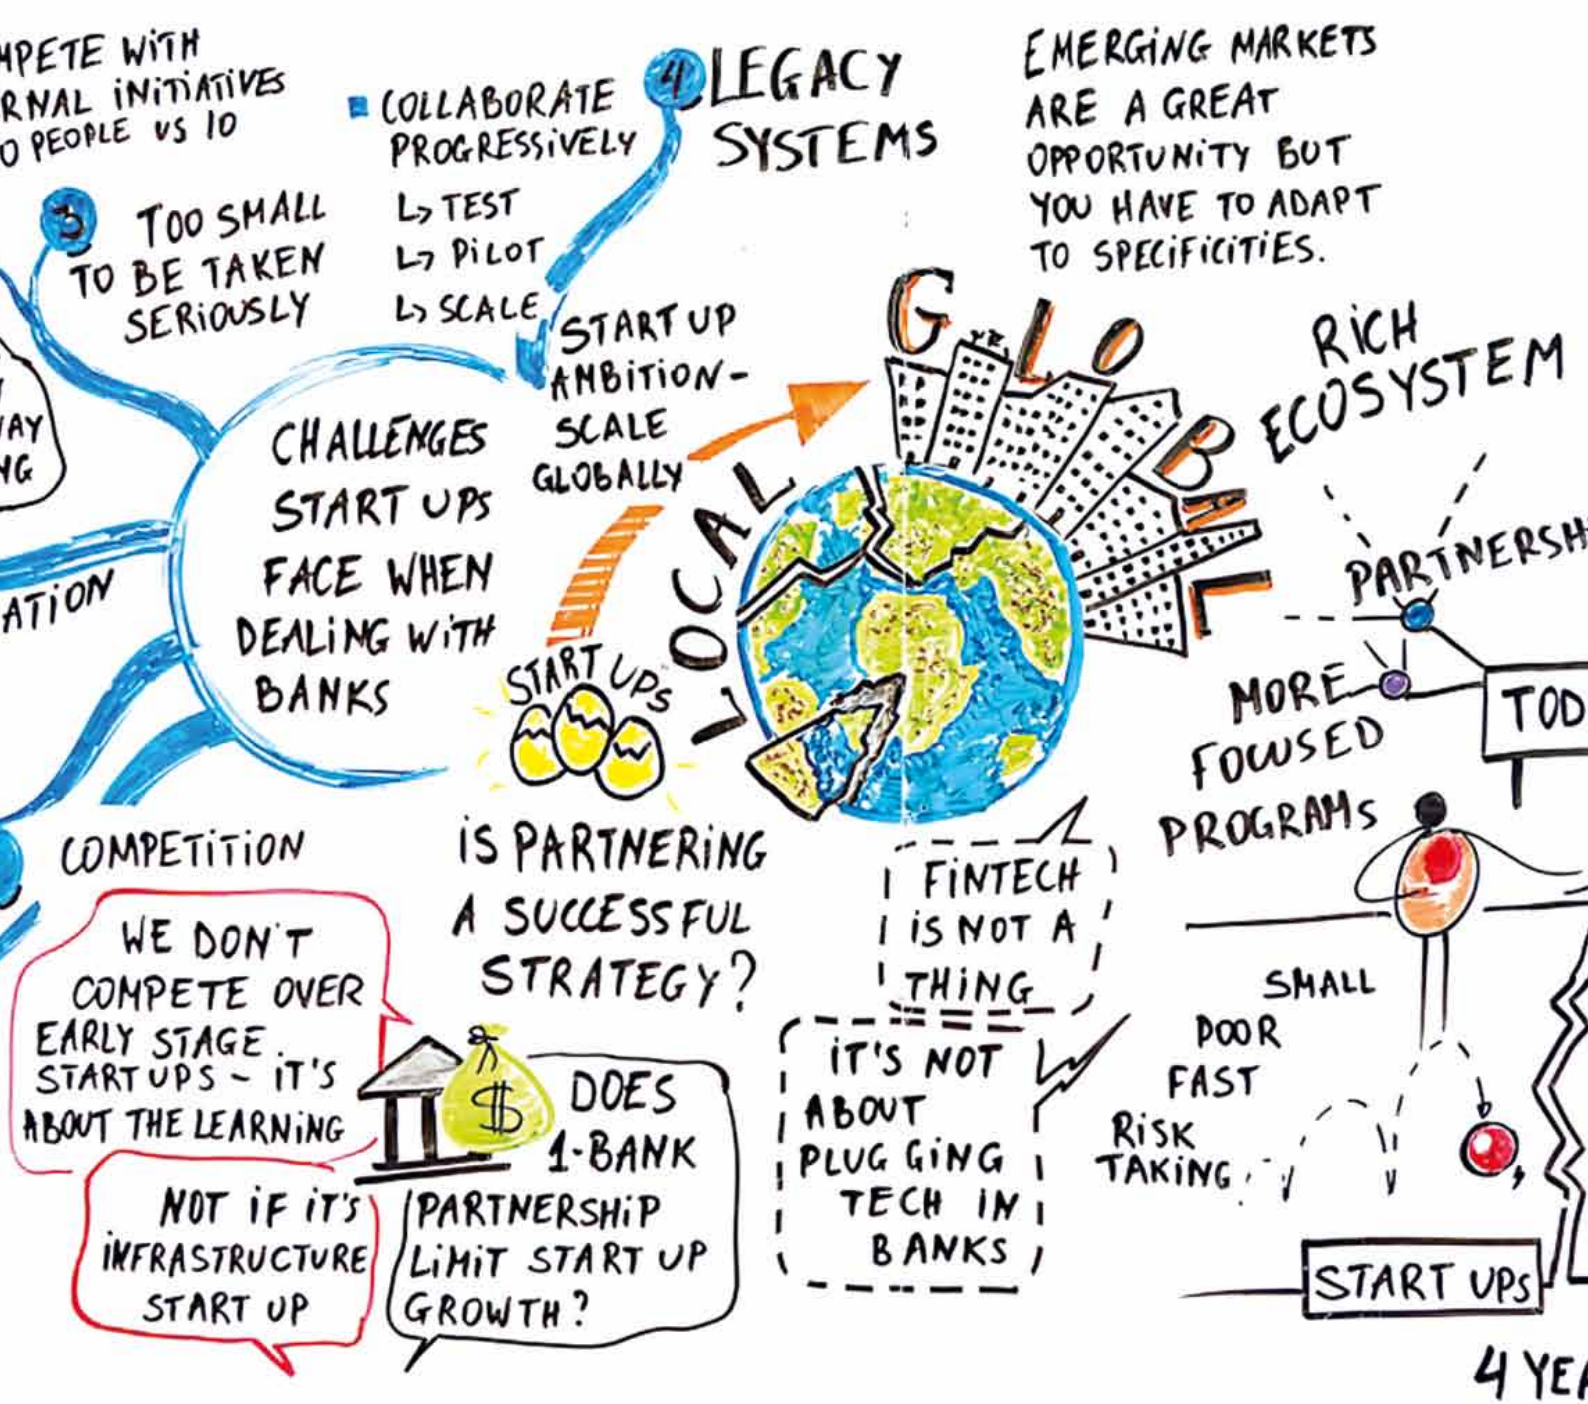 MPETE WITH
RNAL INITIATIVES
0 PEOPLE VS 10
3
TOO SMALL
TO BE TAKEN
SERIOUSLY
COLLABORATE
PROGRESSIVELY
↳ TEST
↳ PILOT
↳ SCALE
4
LEGACY
SYSTEMS
EMERGING MARKETS
ARE A GREAT
OPPORTUNITY BUT
YOU HAVE TO ADAPT
TO SPECIFICITIES.
AY
NG
ATION
CHALLENGES
START UPS
FACE WHEN
DEALING WITH
BANKS
START UP
AMBITION-
SCALE
GLOBALLY
START UP'S
LOCAL
GLOBAL
RICH
ECOSYSTEM
PARTNERSH
MORE
FOCUSED
PROGRAMS
TOD
COMPETITION
WE DON'T
COMPETE OVER
EARLY STAGE
START UPS - IT'S
ABOUT THE LEARNING
NOT IF IT'S
INFRASTRUCTURE
START UP
IS PARTNERING
A SUCCESSFUL
STRATEGY?
$
DOES
1-BANK
PARTNERSHIP
LIMIT START UP
GROWTH?
FINTECH
IS NOT A
THING
IT'S NOT
ABOUT
PLUGGING
TECH IN
BANKS
SMALL
POOR
FAST
RISK
TAKING
START UPS
4 YEA